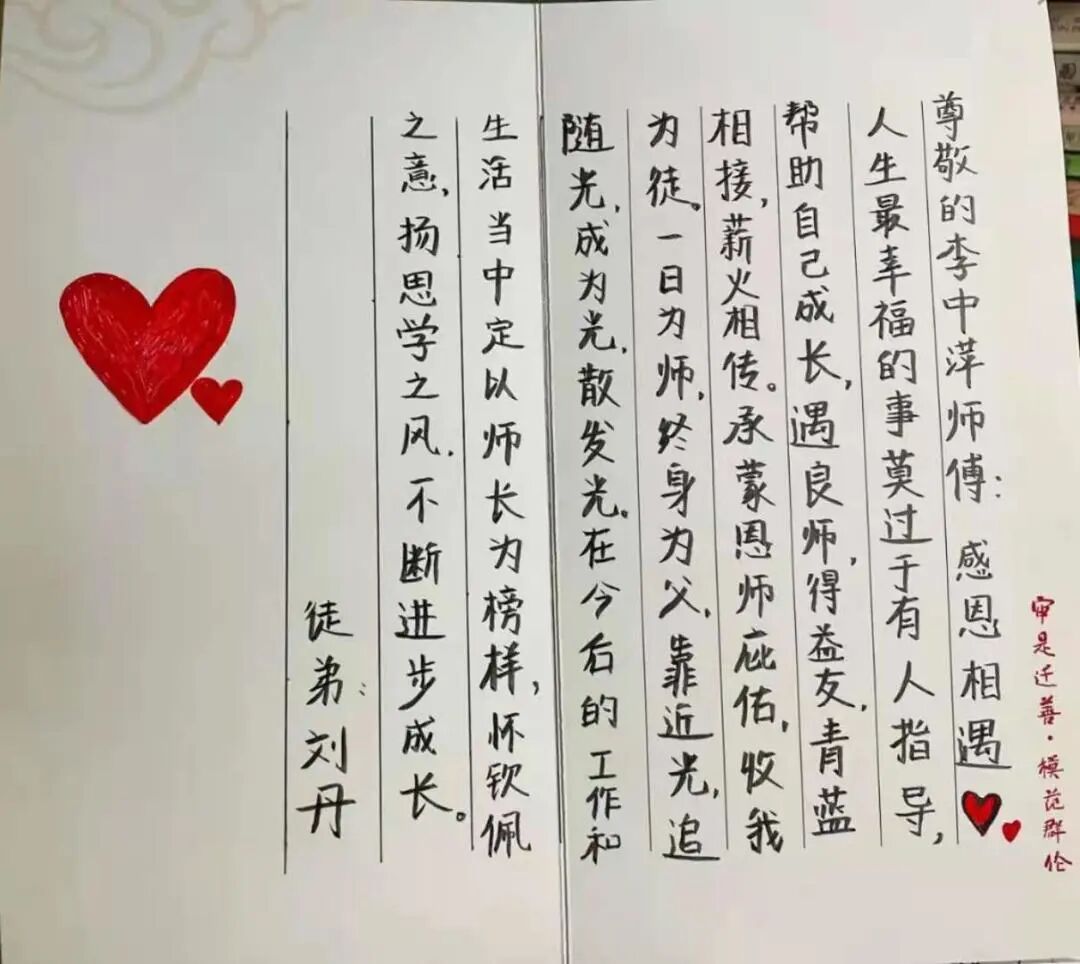 审是迁善·模范群伦
尊敬的李中萍师傅：感恩相遇
人生最幸福的事莫过于有人指导，
帮助自己成长，遇良师，得益友，青蓝
相接，薪火相传。承蒙恩师庇佑，收我
为徒。一日为师，终身为父，靠近光，追
随光，成为光，散发光。在今后的工作和
生活当中定以师长为榜样，怀钦佩
之意，扬思学之风，不断进步成长。
徒弟：刘丹